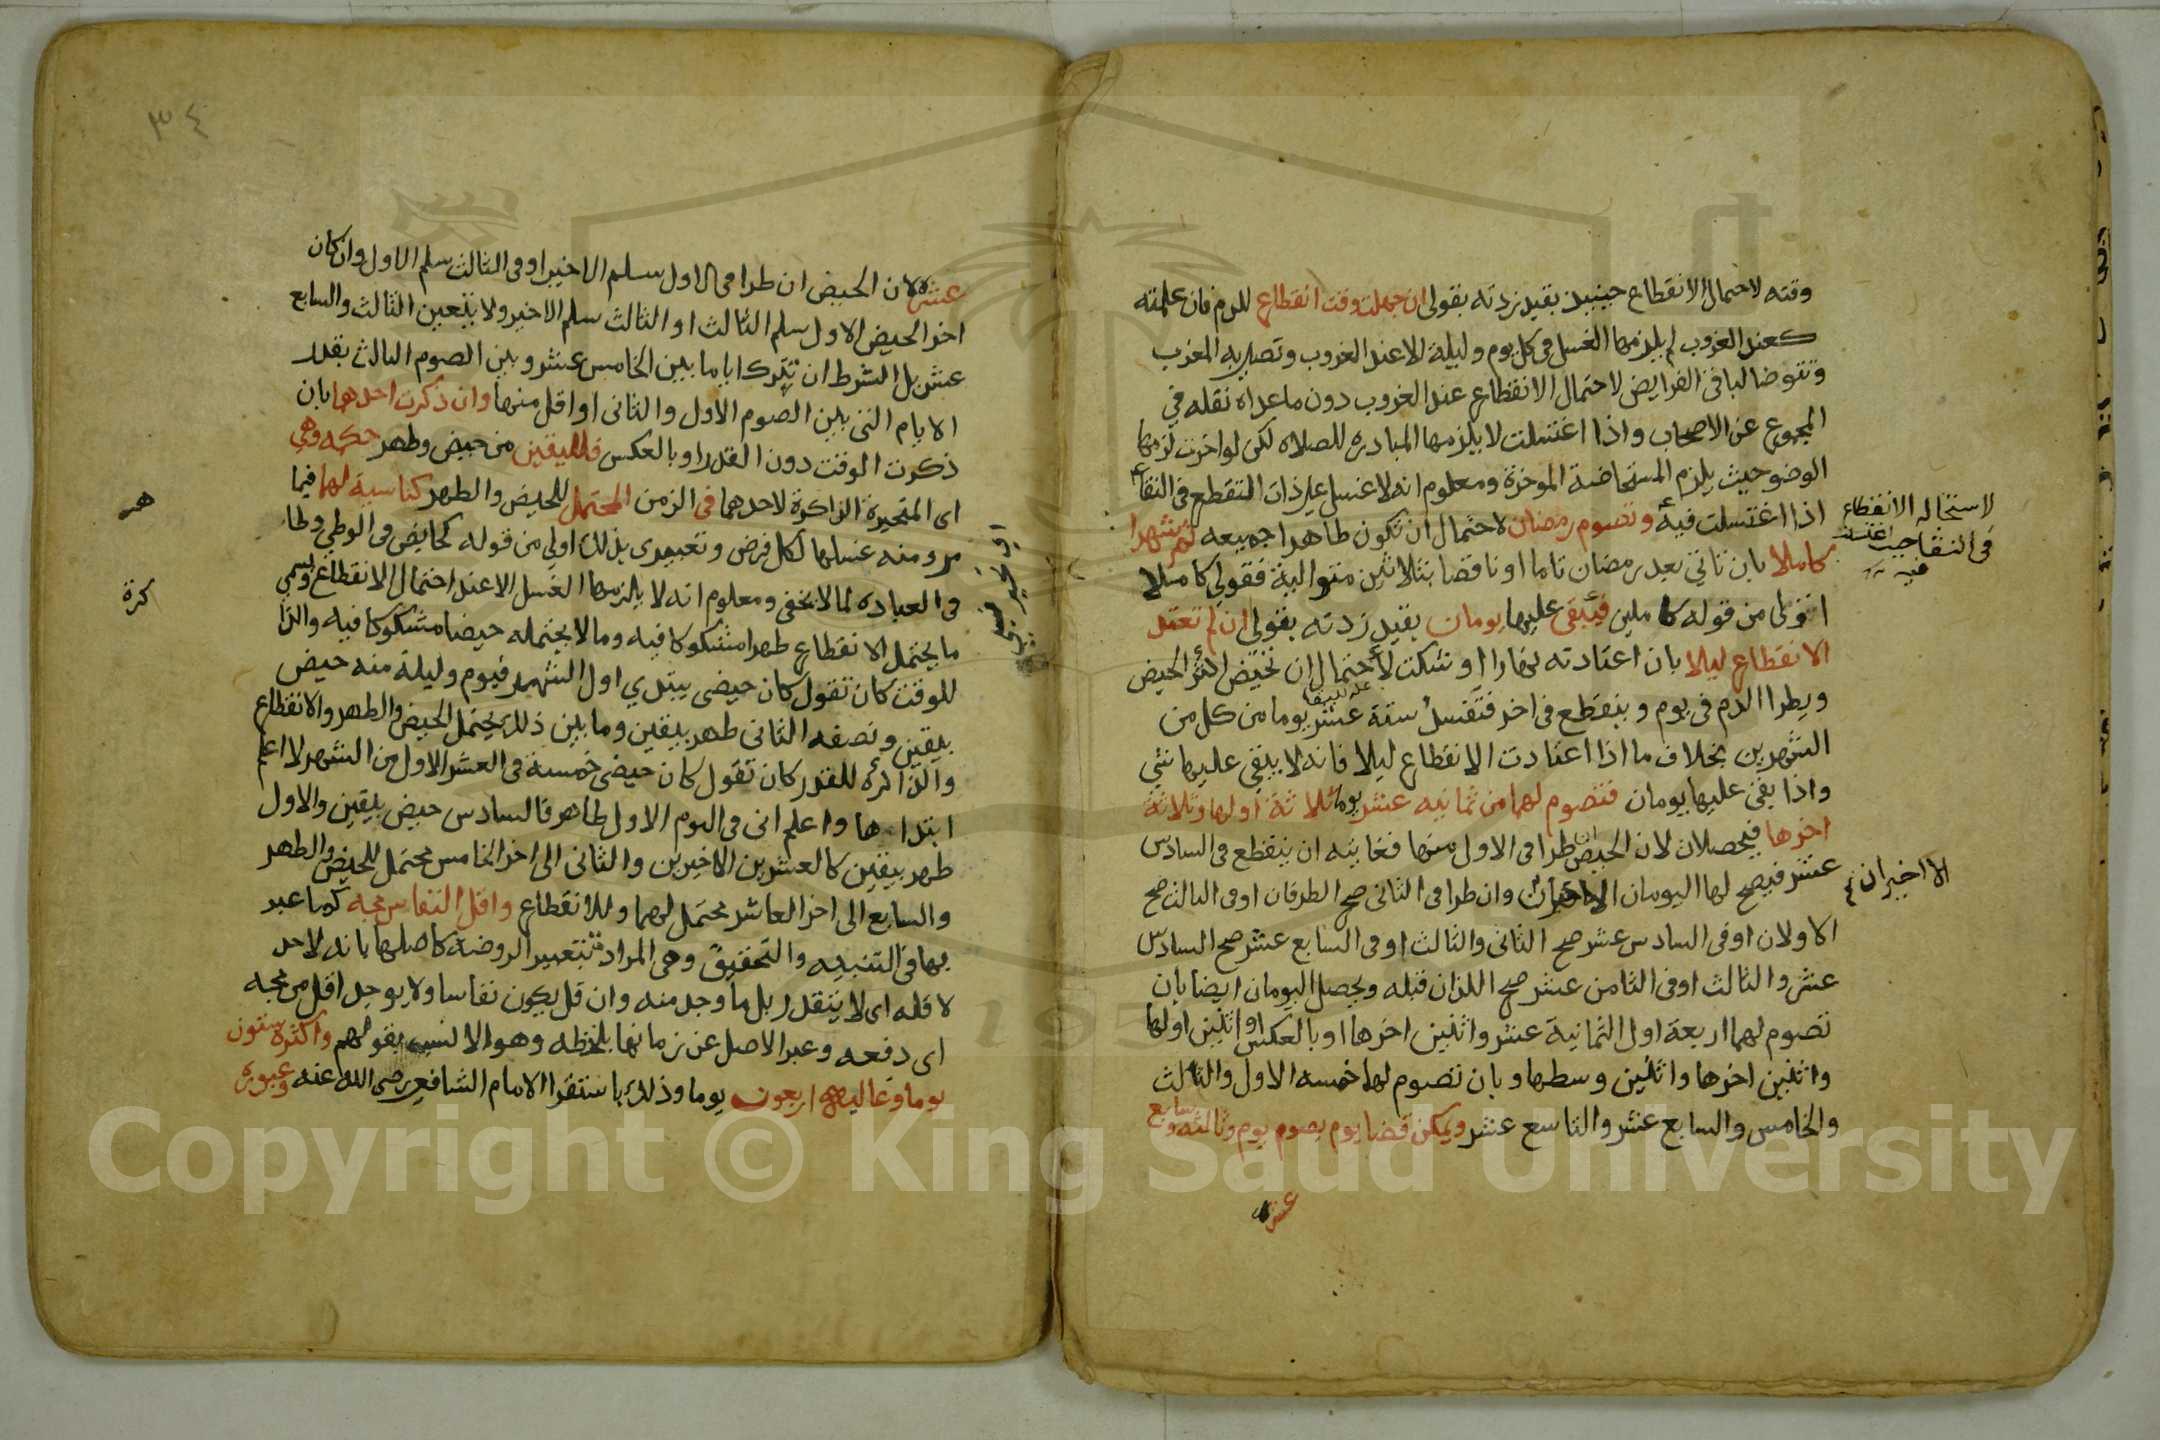 وقته لاحتمال الانقطاع حينيذ بقيد زدته بقولي ان جهلت وقت انقطاع للدم فان علمته
كعند الغروب لم يلزمها الغسل في كل يوم وليلة الا عند الغروب وتصلي به المغرب
وتتوضا لباقي الفرايض لاحتمال الانقطاع عند الغروب دون ما عداه نقله في
المجموع عن الاصحاب واذا اغتسلت لا يلزمها المبادره للصلاه لكن لو اخرت لزمها
الوضو حيث يلزم المستحاضة الموخرة ومعلوم انه لا غسل علي ذات التقطع في النقا
اذا اغتسلت فيه وتصوم رمضان لاحتمال ان تكون طاهرا جميعه ثم شهرا
لاستحالة الانقطاع
في النقا حيث اغتسلت
فيه
كاملا بان تاتي بعد رمضان تاما او ناقصا بثلاثين متوالية فقولي كاملا
اولى من قوله كاملين فيبقى عليها يومان بقيد زدته بقولي ان لم تعتد
الانقطاع ليلا بان اعتادته نهارا او شكت لاحتمال ان تحيض اكثر الحيض
ويطرا الدم في يوم وينقطع في اخر فتفسد ستة عشر يوما من كل من
الشهرين بخلاف ما اذا اعتادت الانقطاع ليلا فانه لا يبقى عليها شي
واذا بقي عليها يومان فتصوم لهما من ثمانيه عشر يوما ثلاثة اولها وثلاثة
اخرها فيحصلان لان الحيض ان طرا في الاول منها فغايته ان ينقطع في السادس
عشر فيصح لها اليومان الاخيران وان طرا في الثاني صح الطرفان او في الثالث صح
الاخيران
الاولان او في السادس عشر صح الثاني والثالث او في السابع عشر صح السادس
عشر والثالث او في الثامن عشر صح اللذان قبله ويحصل اليومان ايضا بان
تصوم لهما اربعة اول الثمانية عشر واثنين اخرها او بالعكس او اثنين اولها
واثنين اخرها واثنين وسطها وبان تصوم لهما خمسه الاول والثالث
والخامس والسابع عشر والتاسع عشر ويمكن قضا يوم بصوم يوم وثالثه وسابع
عشره
٣٤
عشره لان الحيض ان طرا في الاول سلم الاخير او في الثالث سلم الاول وان كان
اخر الحيض الاول سلم الثالث او الثالث سلم الاخير ولا يتعين الثالث والسابع
عشر بل الشرط ان تترك اياما بين الخامس عشر وبين الصوم الثالث بقدر
الايام التي بين الصوم الاول والثاني او اقل منها وان ذكرت احدهما بان
ذكرت الوقت دون القدر او بالعكس فلليقين من حيض وطهر حكمه وهي
اى المتحيرة الذاكرة لاحدهما في الزمن المحتمل للحيض والطهر كناسية لهما فيما
مر ومنه غسلها لكل فرض وتعبيرى بذلك اولى من قوله كحايض في الوطي وطاهر
في العباده لما لا يخفى ومعلوم انه لا يلزمها الغسل الا عند احتمال الانقطاع ويسمي
ما يحتمل الانقطاع طهرا مشكوكا فيه وما لا يحتمله حيضا مشكوكا فيه والذاكرة
للوقت كان تقول كان حيضى يبتدي اول الشهر فيوم وليلة منه حيض
بيقين ونصفه الثانى طهر بيقين وما بين ذلك يحتمل الحيض والطهر والانقطاع
والذاكره للقدر كان تقول كان حيضي خمسة في العشر الاول من الشهر لا اعلم
ابتداءها واعلم انى في اليوم الاول طاهر فالسادس حيض بيقين والاول
طهر بيقين كالعشرين الاخيرين والثاني الى اخر الخامس محتمل للحيض والطهر
والسابع الى اخر العاشر محتمل لهما وللانقطاع واقل النفاس مجه كما عبر
بها في التنبيه والتحقيق وهي المراد بتعبير الروضة كاصلها بانه لا حد
لاقله اى لا يتقدر بل ما وجد منه وان قل يكون نفاسا ولا يوجد اقل من مجه
اى دفعه وعبر الاصل عن زمانها بلحظه وهو الانسب بقولهم واكثره ستون
يوما وغالبه اربعون يوما وذلك باستقرا الامام الشافعي رضى الله عنه وعبوري